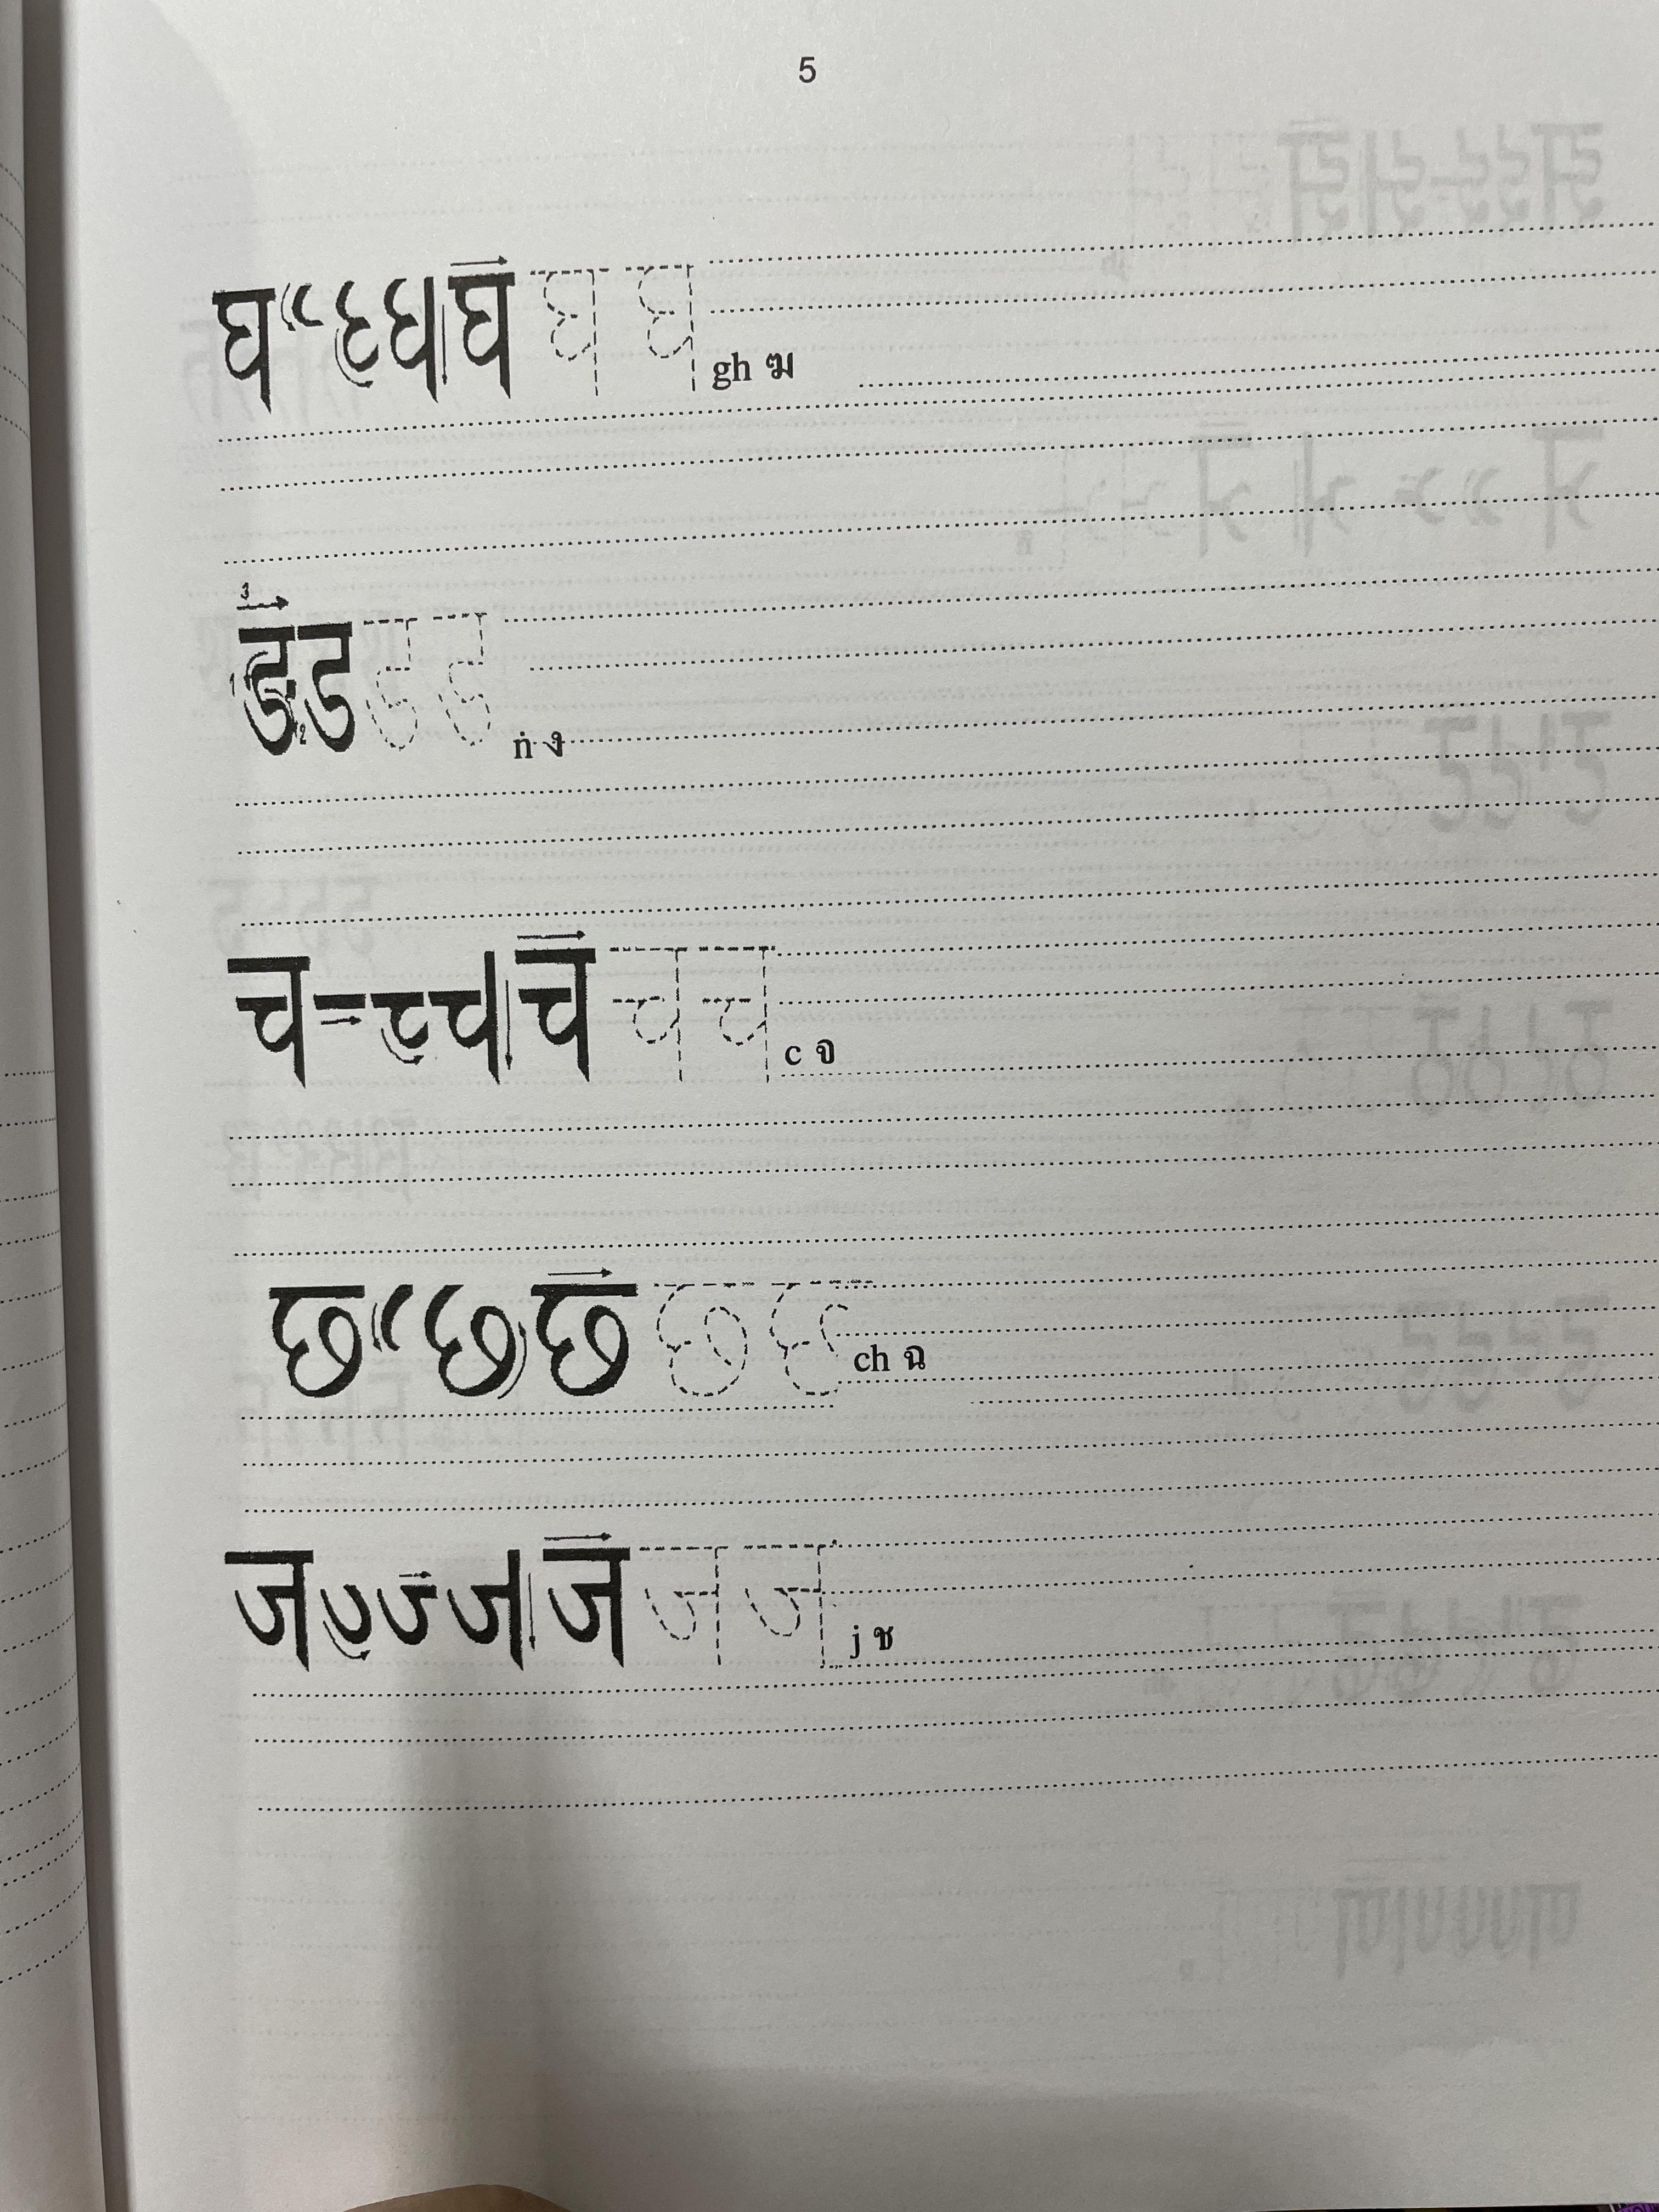 5
घ घ घ घ gh ฆ
3
ड ड ड ड ṅ ง
च च च च c จ
छ छ छ ch ฉ
ज ज ज ज j ช